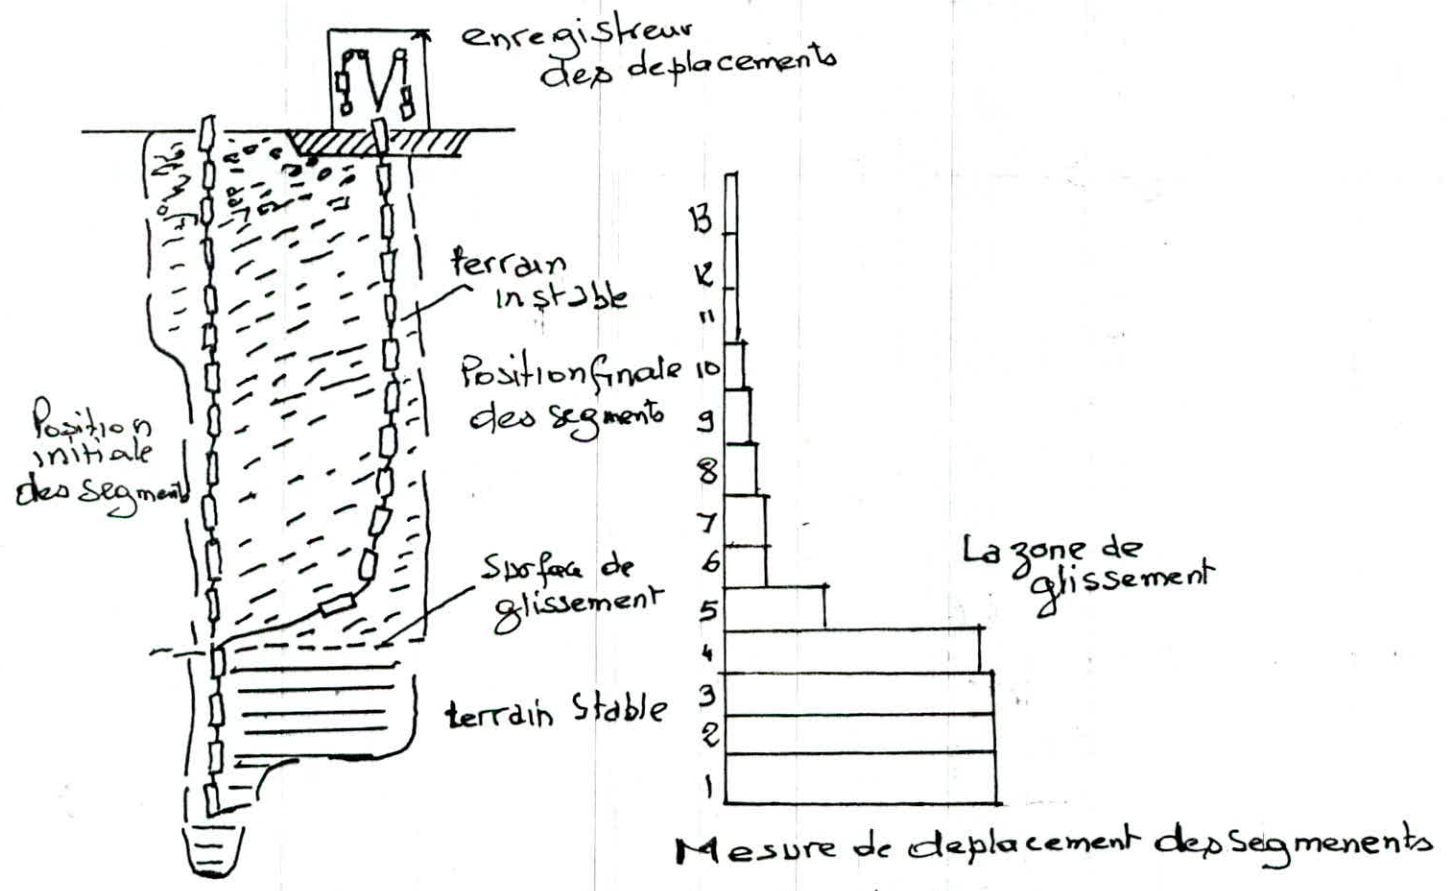 enregistreur
des deplacements
terrain
instable
Position finale
des segments
Position
initiale
des segment
Surface de
glissement
terrain stable
13
12
11
10
9
8
7
6
5
4
3
2
1
La zone de
glissement
Mesure de deplacement des segmenents